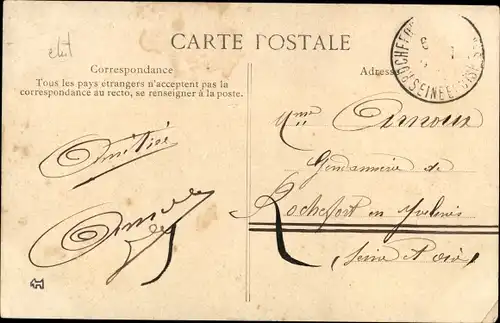 CARTE POSTALE
Correspondance
Tous les pays étrangers n'acceptent pas la
correspondance au recto, se renseigner à la poste.
Adress
Amitié
Gendarmerie de
Rochefort en Yvelines
(Seine et Oise)
ROCHEFORT
SEINE